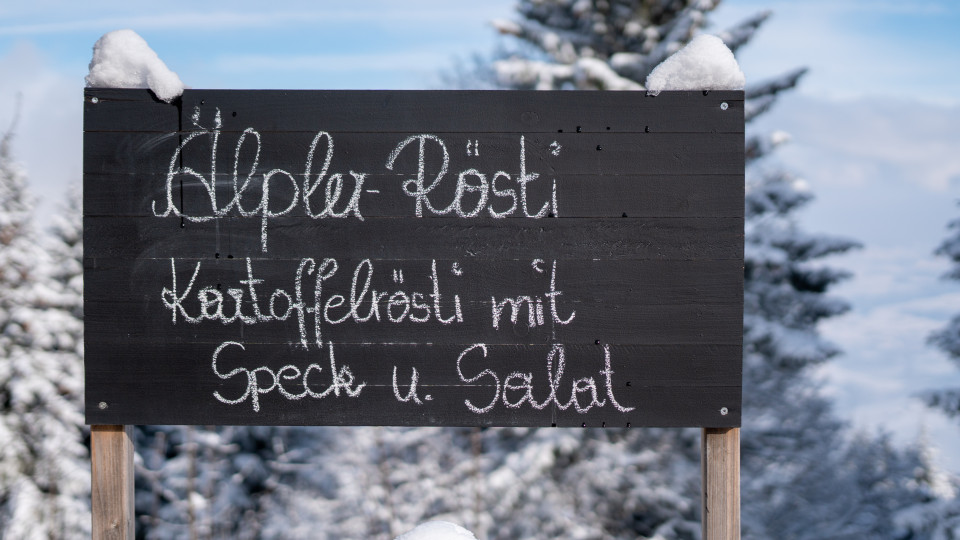 Älpler-Rösti
Kartoffelrösti mit
Speck u. Salat